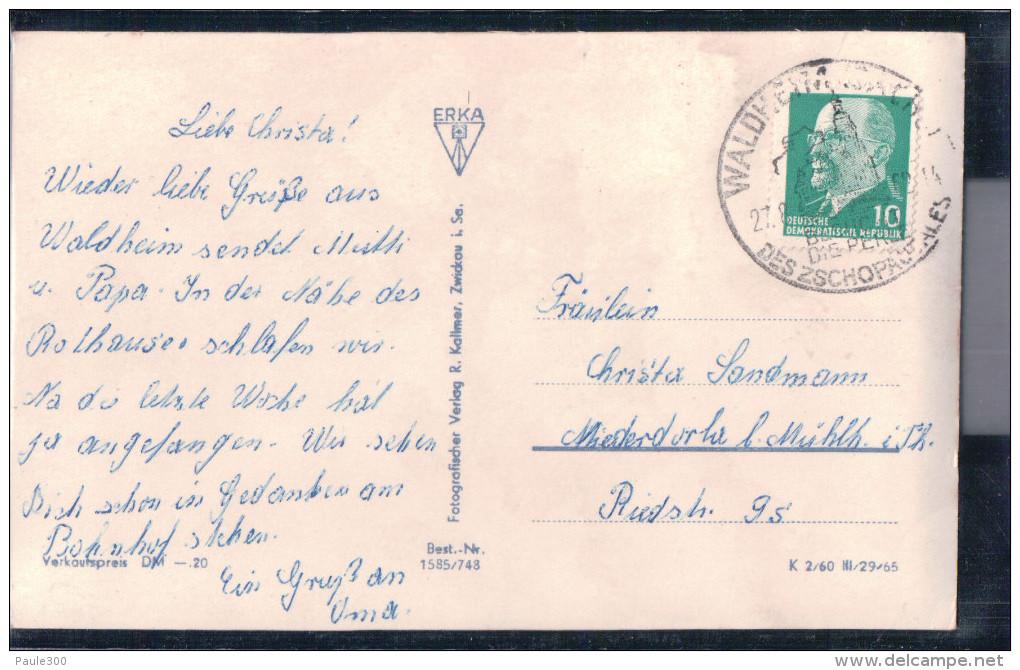 Liebe Christa!
Wieder liebe Grüße aus
Waldheim sendet Mutti
u. Papa. In der Nähe des
Rathauses schlafen wir.
Na die letzte Woche hat
ja angefangen. Wir sehen
Dich schon in Gedanken am
Bahnhof stehen.
Ein Gruß an
Oma.
Verkaufspreis DM —.20
ERKA
Fotografischer Verlag R. Kallmer, Zwickau i. Sa.
Best.-Nr.
1585/748
WALDHEIM
27.
DIE PERLE
DES ZSCHOPAUTALES
10
DEUTSCHE
DEMOKRATISCHE REPUBLIK
Fräulein
Christa Sandmann
Niederdorla b. Mühlh. i. Th.
Riedstr. 95
K 2/60 III/29/65
Paule300